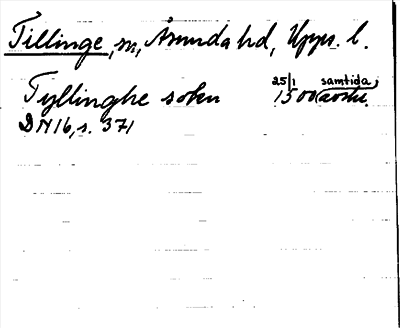 Tillinge, sn, Åsunda hd, Upps. l.
Tyllinghe sokn 25/1 1500 (samtida avskr.
DN 16, s. 371